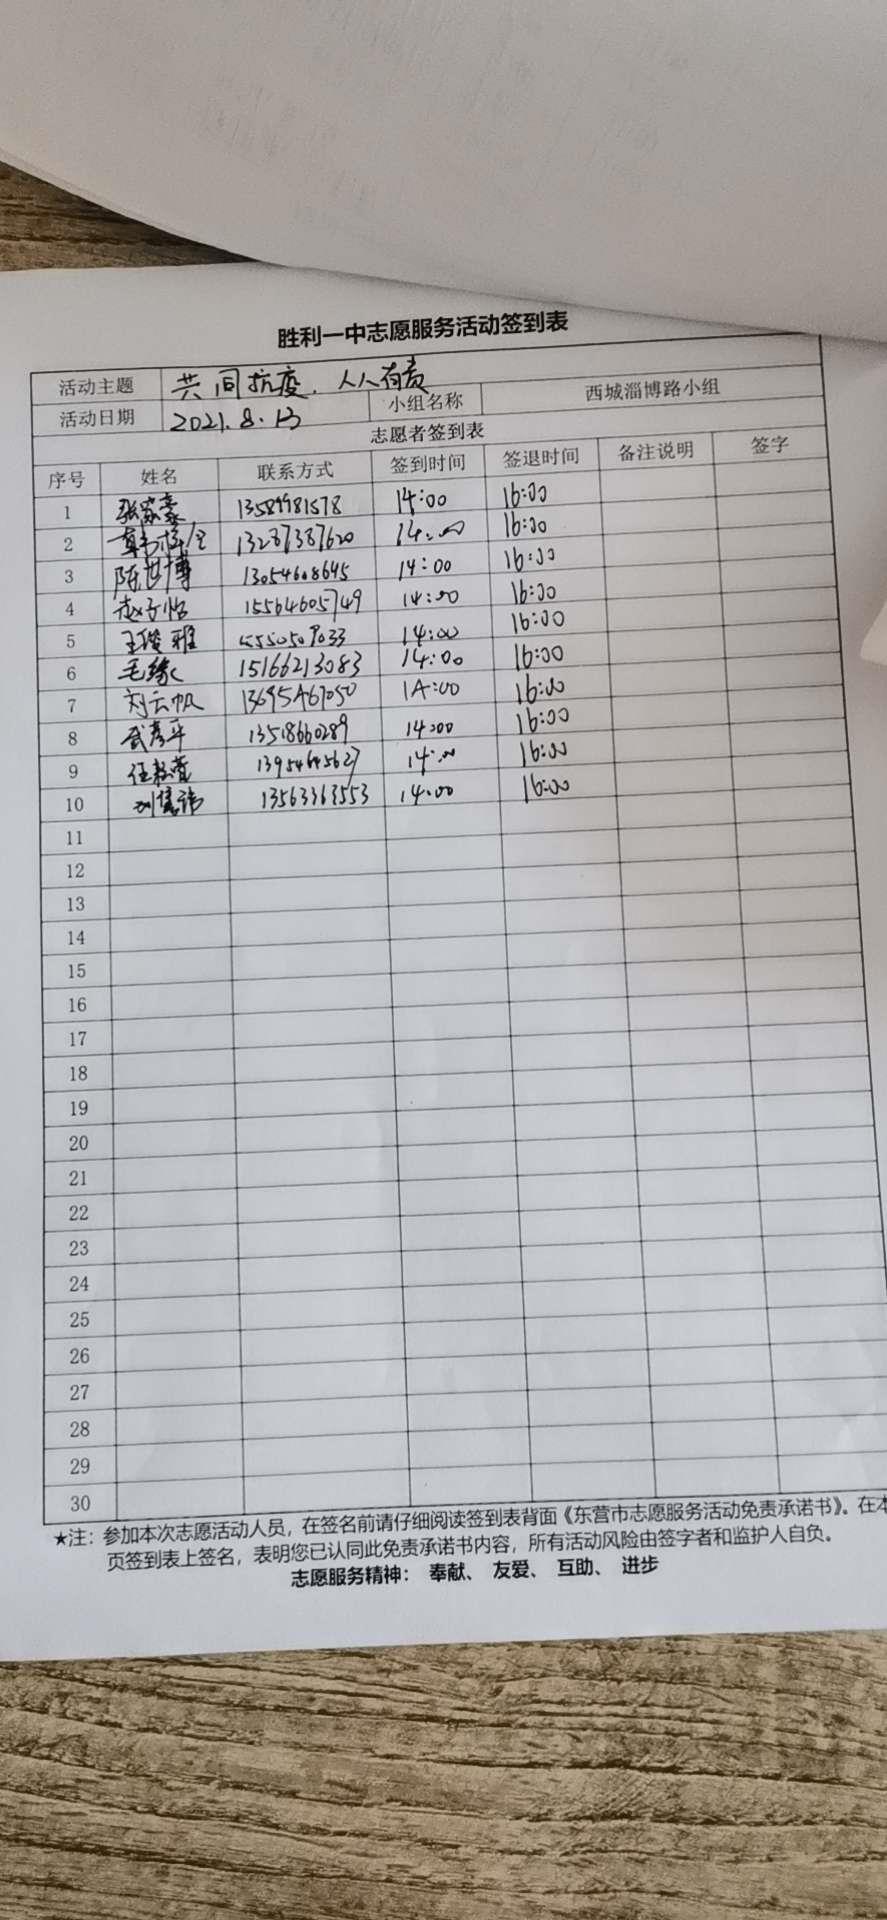 胜利一中志愿服务活动签到表
活动主题 共同抗疫，人人有责
活动日期 2021.8.13 小组名称 西城淄博路小组
志愿者签到表
序号 姓名 联系方式 签到时间 签退时间 备注说明 签字
1 张家豪 13589981578 14:00 16:00
2 13287387620 14:00 16:00
3 陈世博 13054608645 14:00 16:00
4 赵子怡 15564605749 14:00 16:00
5 14:00 16:00
6 毛缘 15166213083 14:00 16:00
7 刘云帆 14:00 16:00
8 武彦平 13518660289 14:00 16:00
9 13954645627 14:00 16:00
10 13563363553 14:00 16:00
11
12
13
14
15
16
17
18
19
20
21
22
23
24
25
26
27
28
29
30
★注：参加本次志愿活动人员，在签名前请仔细阅读签到表背面《东营市志愿服务活动免责承诺书》。在本
页签到表上签名，表明您已认同此免责承诺书内容，所有活动风险由签字者和监护人自负。
志愿服务精神： 奉献、 友爱、 互助、 进步